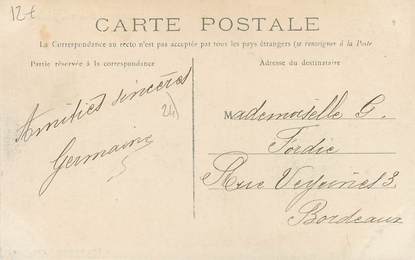 12t
CARTE POSTALE
La Correspondance au recto n'est pas acceptée par tous les pays étrangers (se renseigner à la Poste
Partie réservée à la correspondance
Adresse du destinataire
Amitiés sincères
24)
Germaine
Mademoiselle G.
Tordic
Rue Veyrines 3
Bordeaux